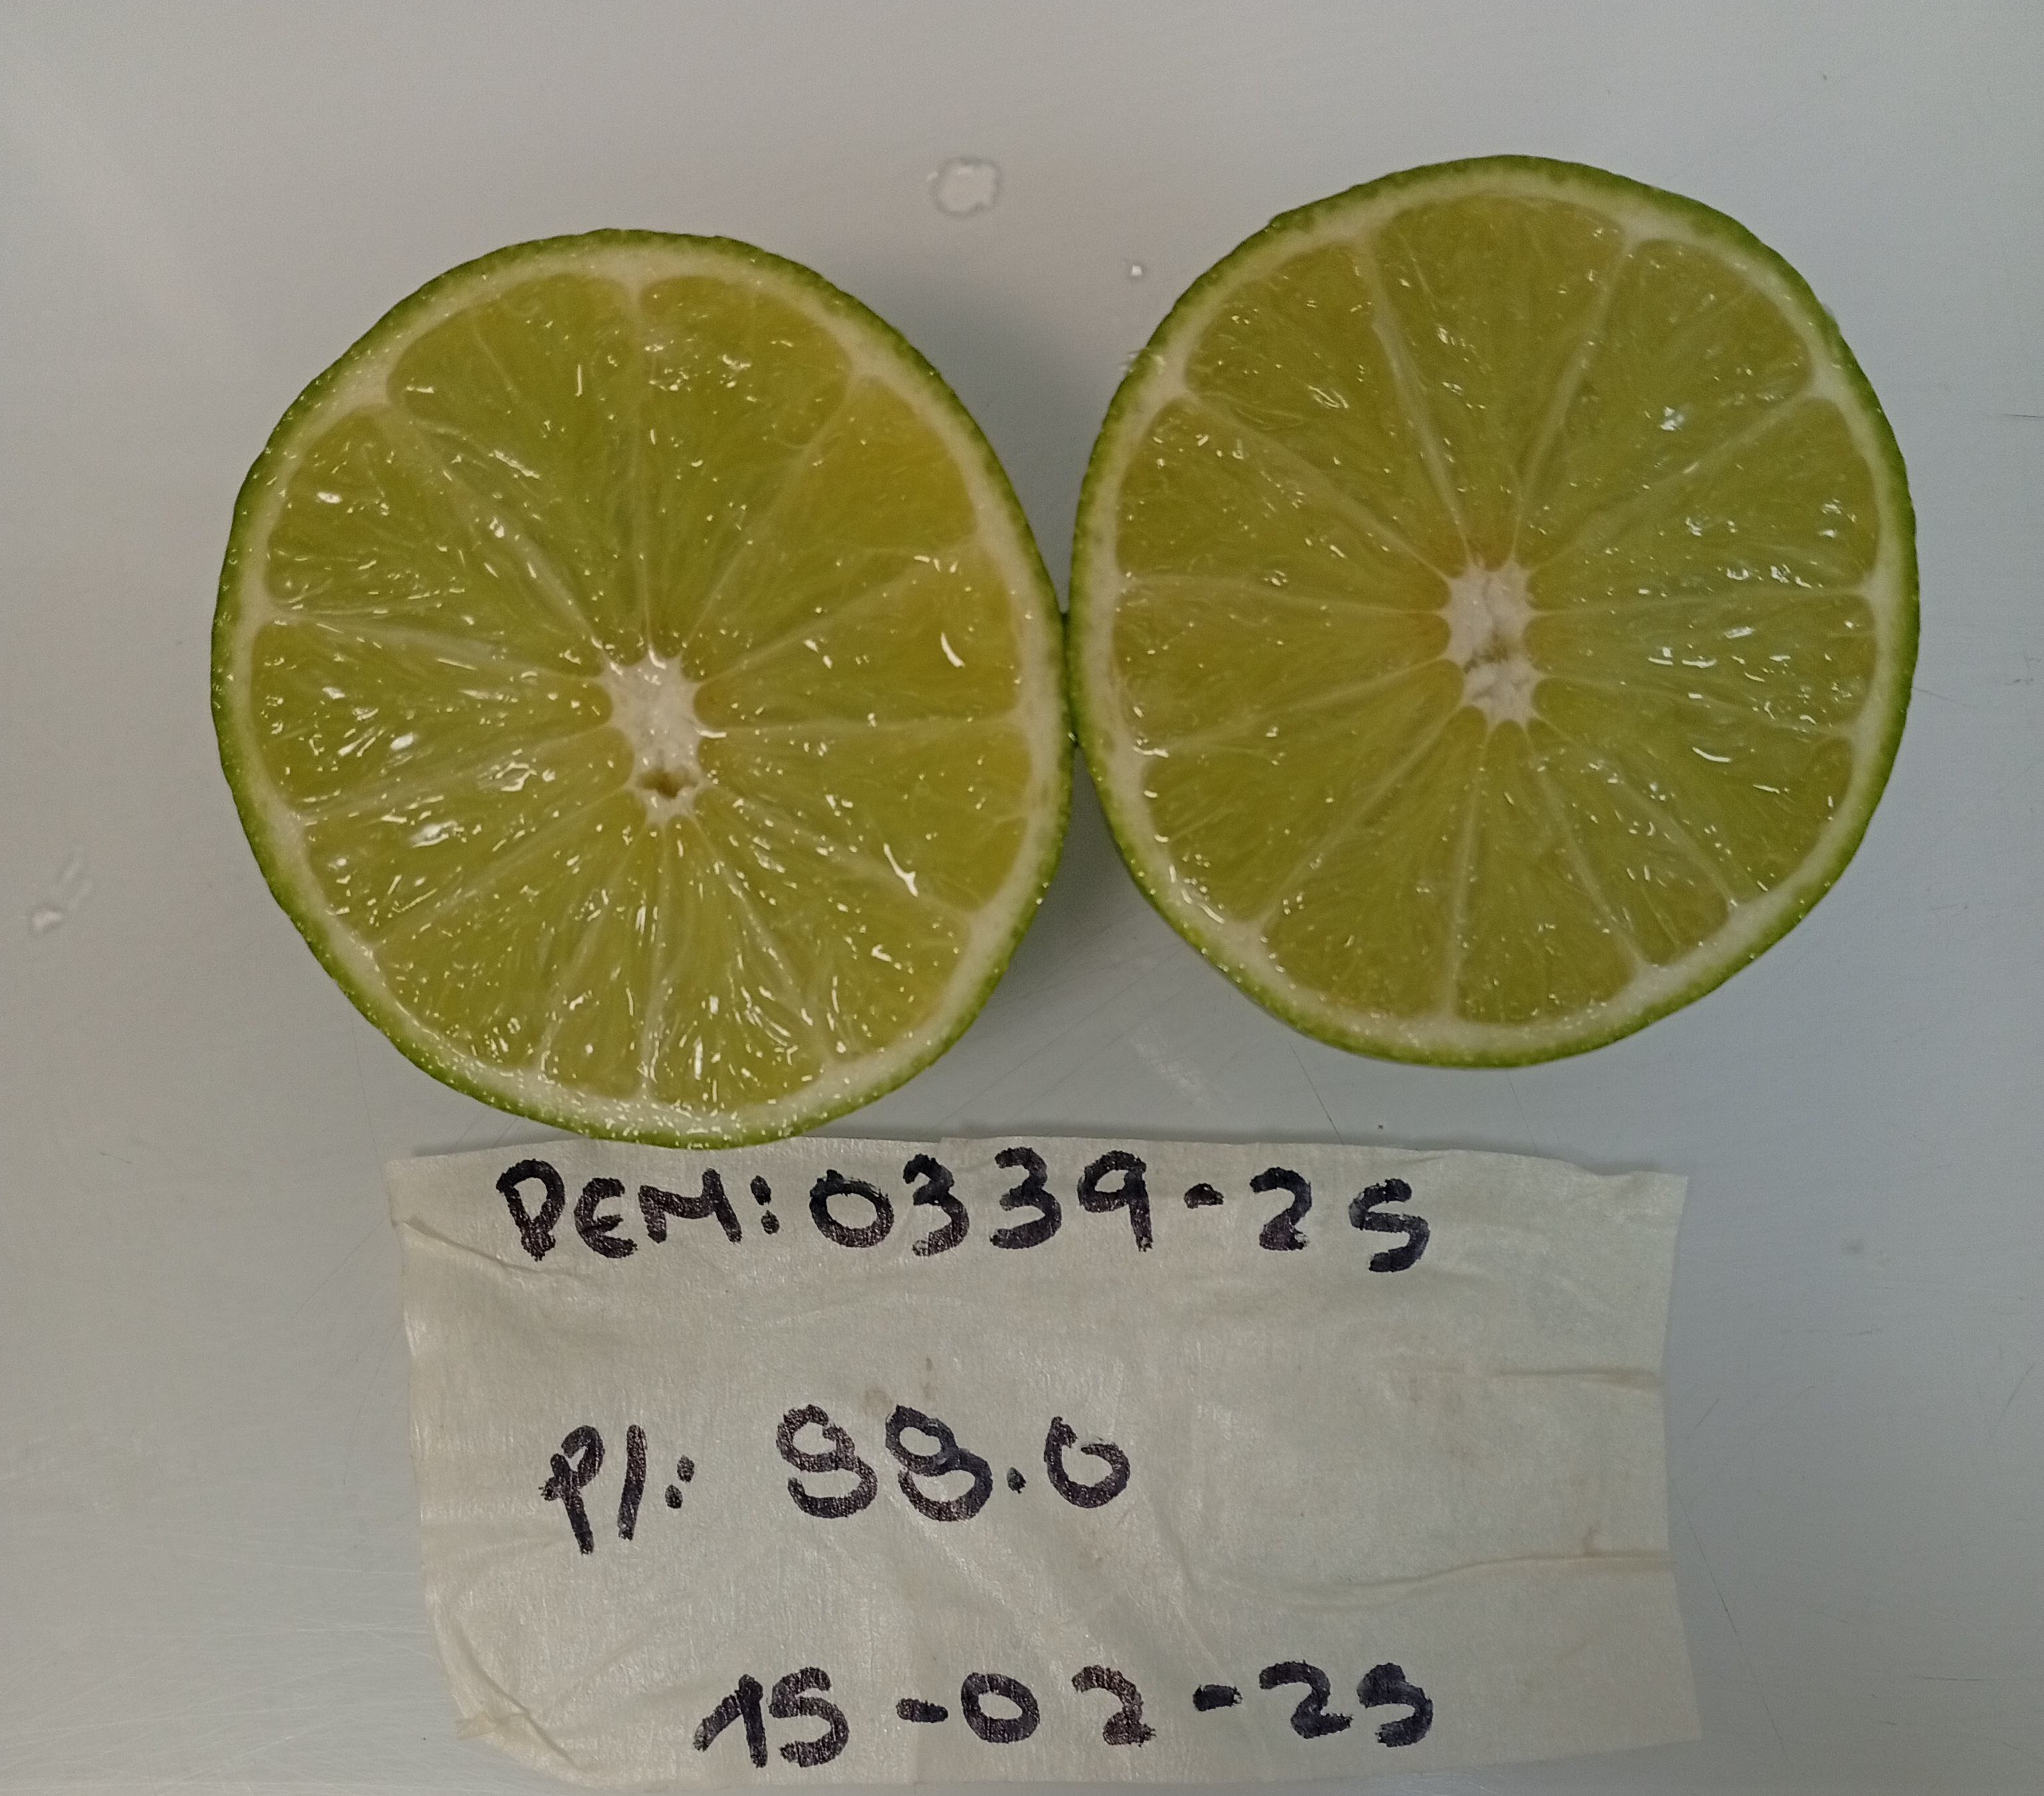 DEM: 0339-25
P/: 88.0
15-02-25